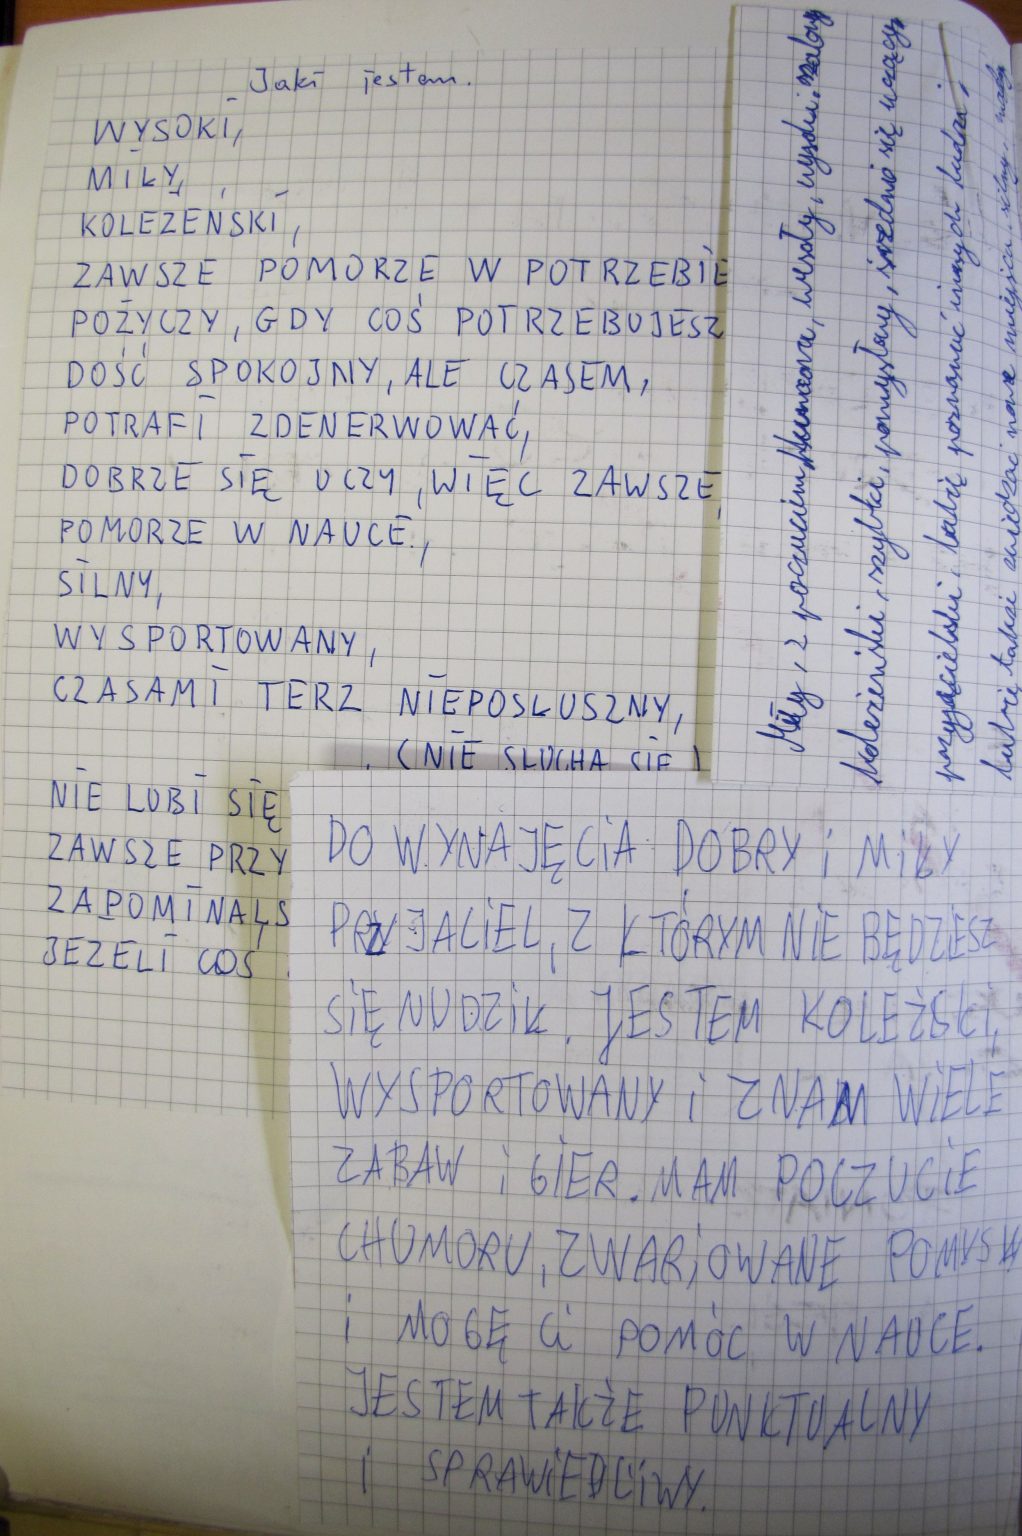 Jaki jestem.
WYSOKI,
MIŁY,
KOLEŻEŃSKI,
ZAWSZE POMORZE W POTRZEBIE
POŻYCZY, GDY COŚ POTRZEBUJESZ
DOŚĆ SPOKOJNY, ALE CZASEM,
POTRAFI ZDENERWOWAĆ,
DOBRZE SIĘ UCZY, WIĘC ZAWSZE,
POMORZE W NAUCE,
SILNY,
WYSPORTOWANY,
CZASAMI TERZ NIEPOSŁUSZNY,
(NIE SŁUCHA SIĘ)
NIE LUBI SIĘ
ZAWSZE PRZY
ZAPOMINAŁS
JEŻELI COŚ
Miły, z poczuciem humoru, wesoły, wysoki,
koleżeński, szybki, pomysłowy, średnio się uczący,
przyjacielski, lubię poznawać innych ludzi,
lubię także zwiedzać nowe miejsca, silny,
DO WYNAJĘCIA DOBRY i MIŁY
PRZYJACIEL, Z KTÓRYM NIE BĘDZIESZ
SIĘ NUDZIŁ. JESTEM KOLEŻSKI,
WYSPORTOWANY i ZNAM WIELE
ZABAW i GIER. MAM POCZUCIE
CHUMORU, ZWARJOWANE POMYSŁY
i MOGĘ Ci POMÓC W NAUCE.
JESTEM TAKŻE PUNKTUALNY
i SPRAWIEDLIWY.